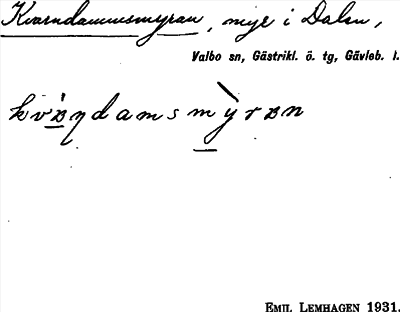 Kvarndammsmyran, myr i Dalen,
Valbo sn, Gästrikl. ö. tg, Gävleb. l.
kvàꞥdamsmỳrʙn
EMIL LEMHAGEN 1931.